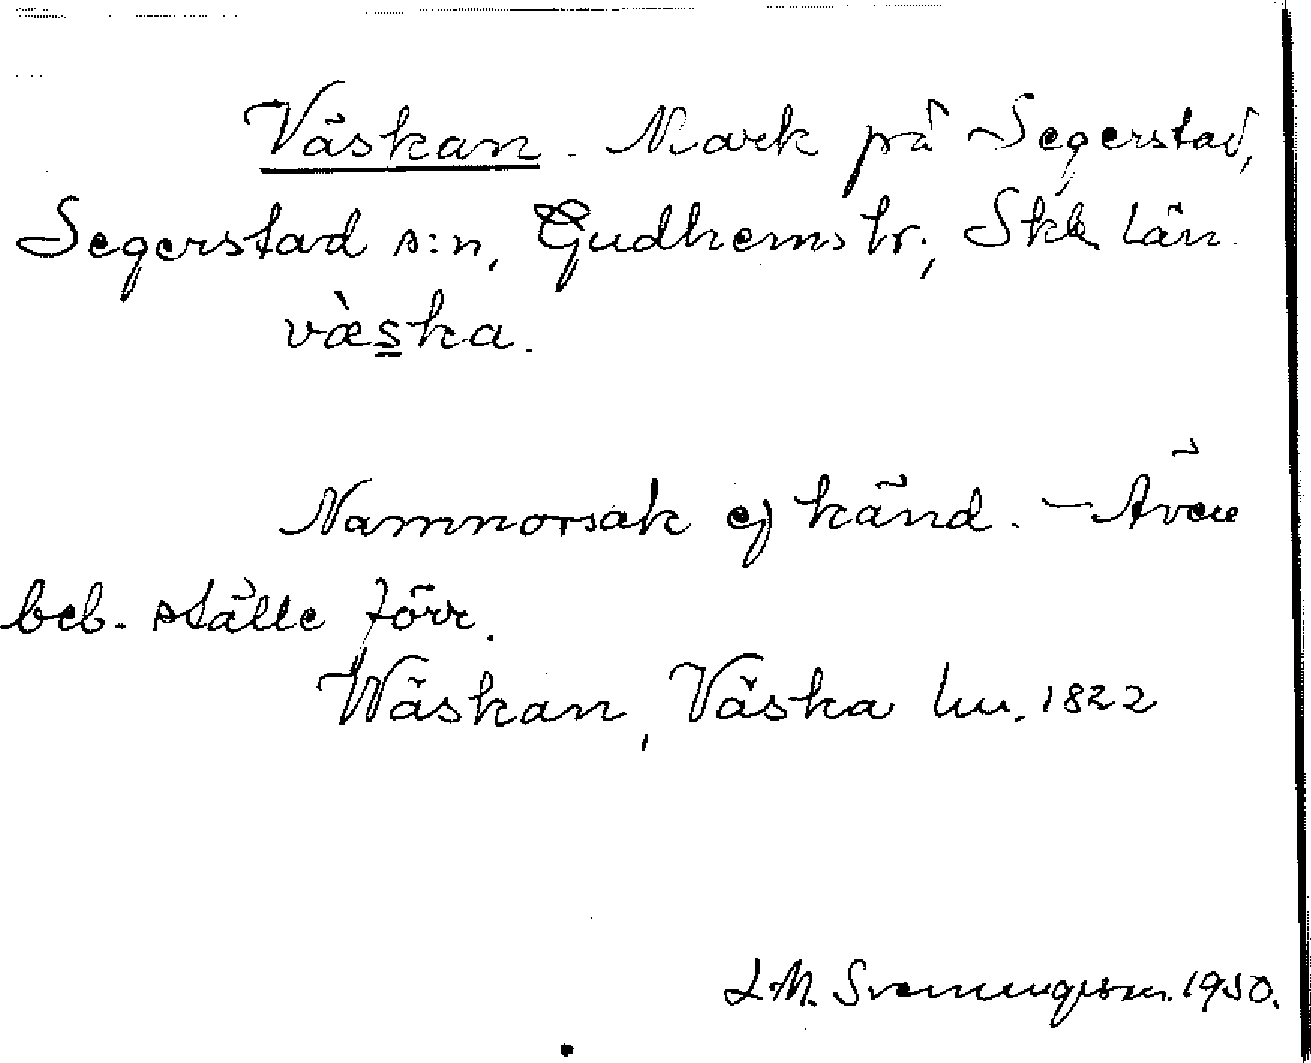 Väskan. Mark på Segerstad,
Segerstad s:n, Gudhems hr, Skb. län.
vàeska.
Namnorsak ej känd. – Även
beb. ställe förr.
Wäskan, Väska hu. 1822
L.M. Svenungsson. 1950.